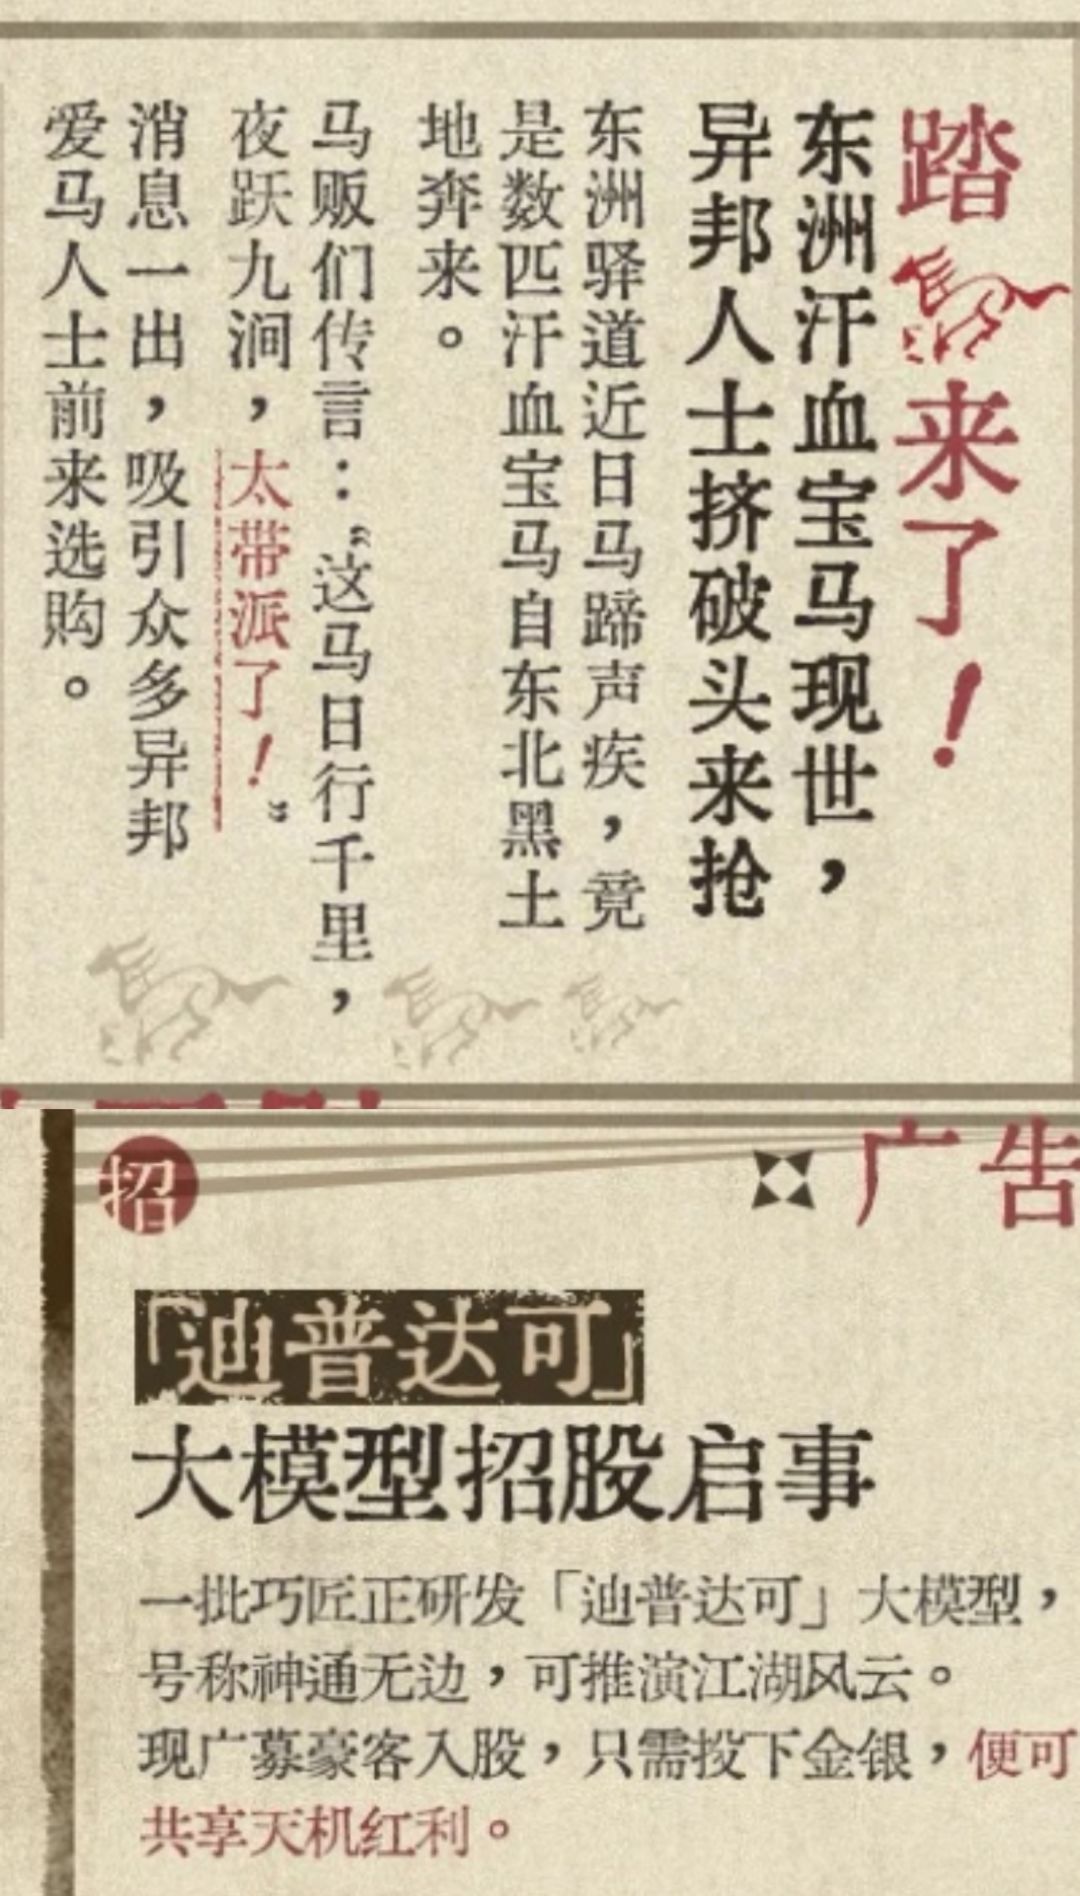 踏马来了！
东洲汗血宝马现世，
异邦人士挤破头来抢
东洲驿道近日马蹄声疾，竟
是数匹汗血宝马自东北黑土
地奔来。
马贩们传言：“这马日行千里，
夜跃九涧，太带派了！”
消息一出，吸引众多异邦
爱马人士前来选购。
招
广告
「迪普达可」
大模型招股启事
一批巧匠正研发「迪普达可」大模型，
号称神通无边，可推演江湖风云。
现广募豪客入股，只需投下金银，便可
共享天机红利。